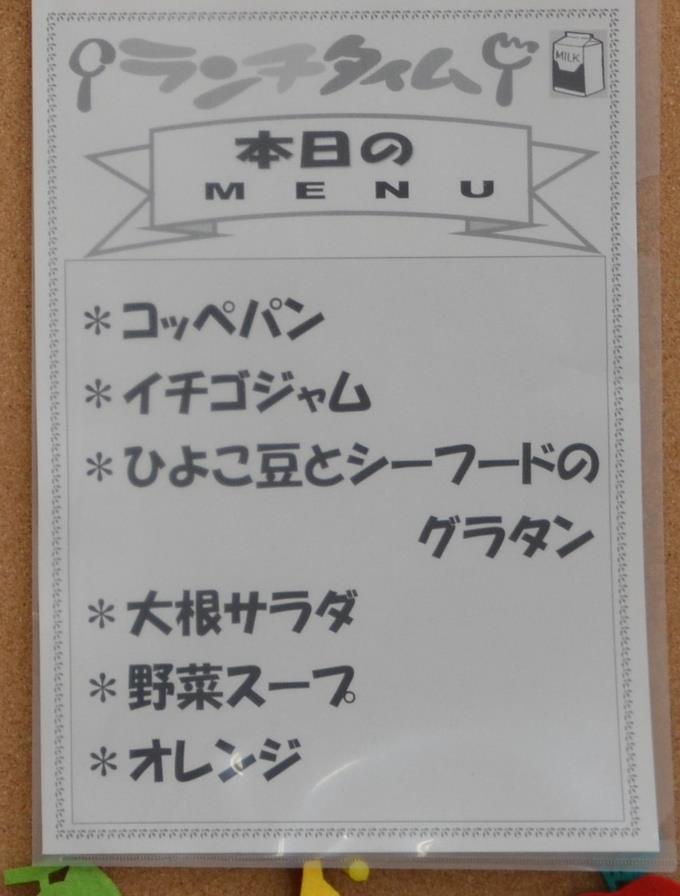 ランチタイム
MILK
本日の
MENU
＊コッペパン
＊イチゴジャム
＊ひよこ豆とシーフードの
グラタン
＊大根サラダ
＊野菜スープ
＊オレンジ